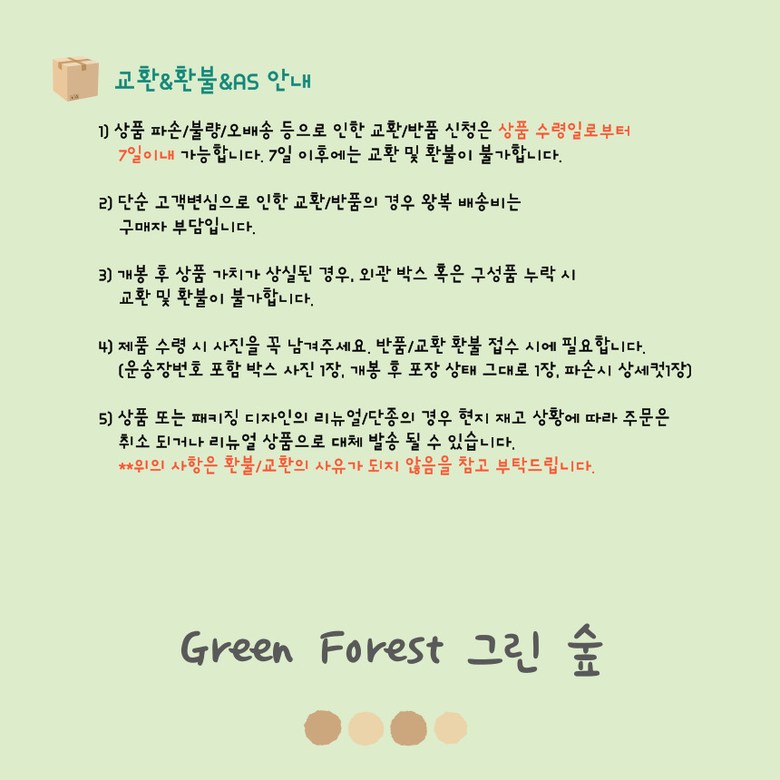 교환&환불&AS 안내
1) 상품 파손/불량/오배송 등으로 인한 교환/반품 신청은 상품 수령일로부터
7일이내 가능합니다. 7일 이후에는 교환 및 환불이 불가합니다.
2) 단순 고객변심으로 인한 교환/반품의 경우 왕복 배송비는
구매자 부담입니다.
3) 개봉 후 상품 가치가 상실된 경우, 외관 박스 혹은 구성품 누락 시
교환 및 환불이 불가합니다.
4) 제품 수령 시 사진을 꼭 남겨주세요. 반품/교환 환불 접수 시에 필요합니다.
(운송장번호 포함 박스 사진 1장, 개봉 후 포장 상태 그대로 1장, 파손시 상세컷1장)
5) 상품 또는 패키징 디자인의 리뉴얼/단종의 경우 현지 재고 상황에 따라 주문은
취소 되거나 리뉴얼 상품으로 대체 발송 될 수 있습니다.
**위의 사항은 환불/교환의 사유가 되지 않음을 참고 부탁드립니다.
Green Forest 그린 숲